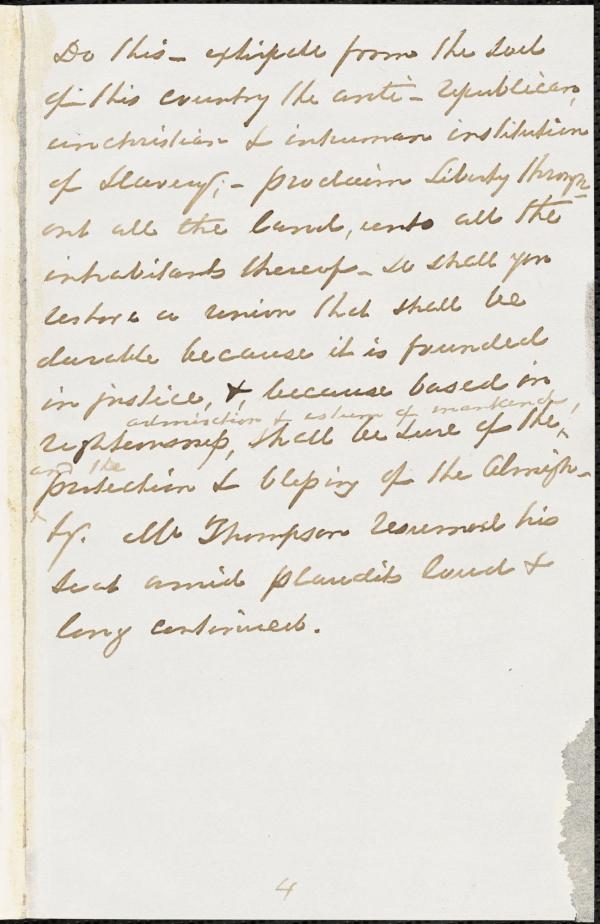 Do this – extirpate from the soil
of this country the anti-republican,
unchristian & inhuman institution
of Slavery; – proclaim Liberty through-
out all the land, unto all the
inhabitants thereof – So shall you
restore a union that shall be
durable because it is founded
in justice, & because based in
admiration & esteem of mankind,
righteousness, shall be sure of the
and the
protection & blessing of the Almigh-
ty. Mr Thompson resumed his
seat amid plaudits loud &
long continued.
4